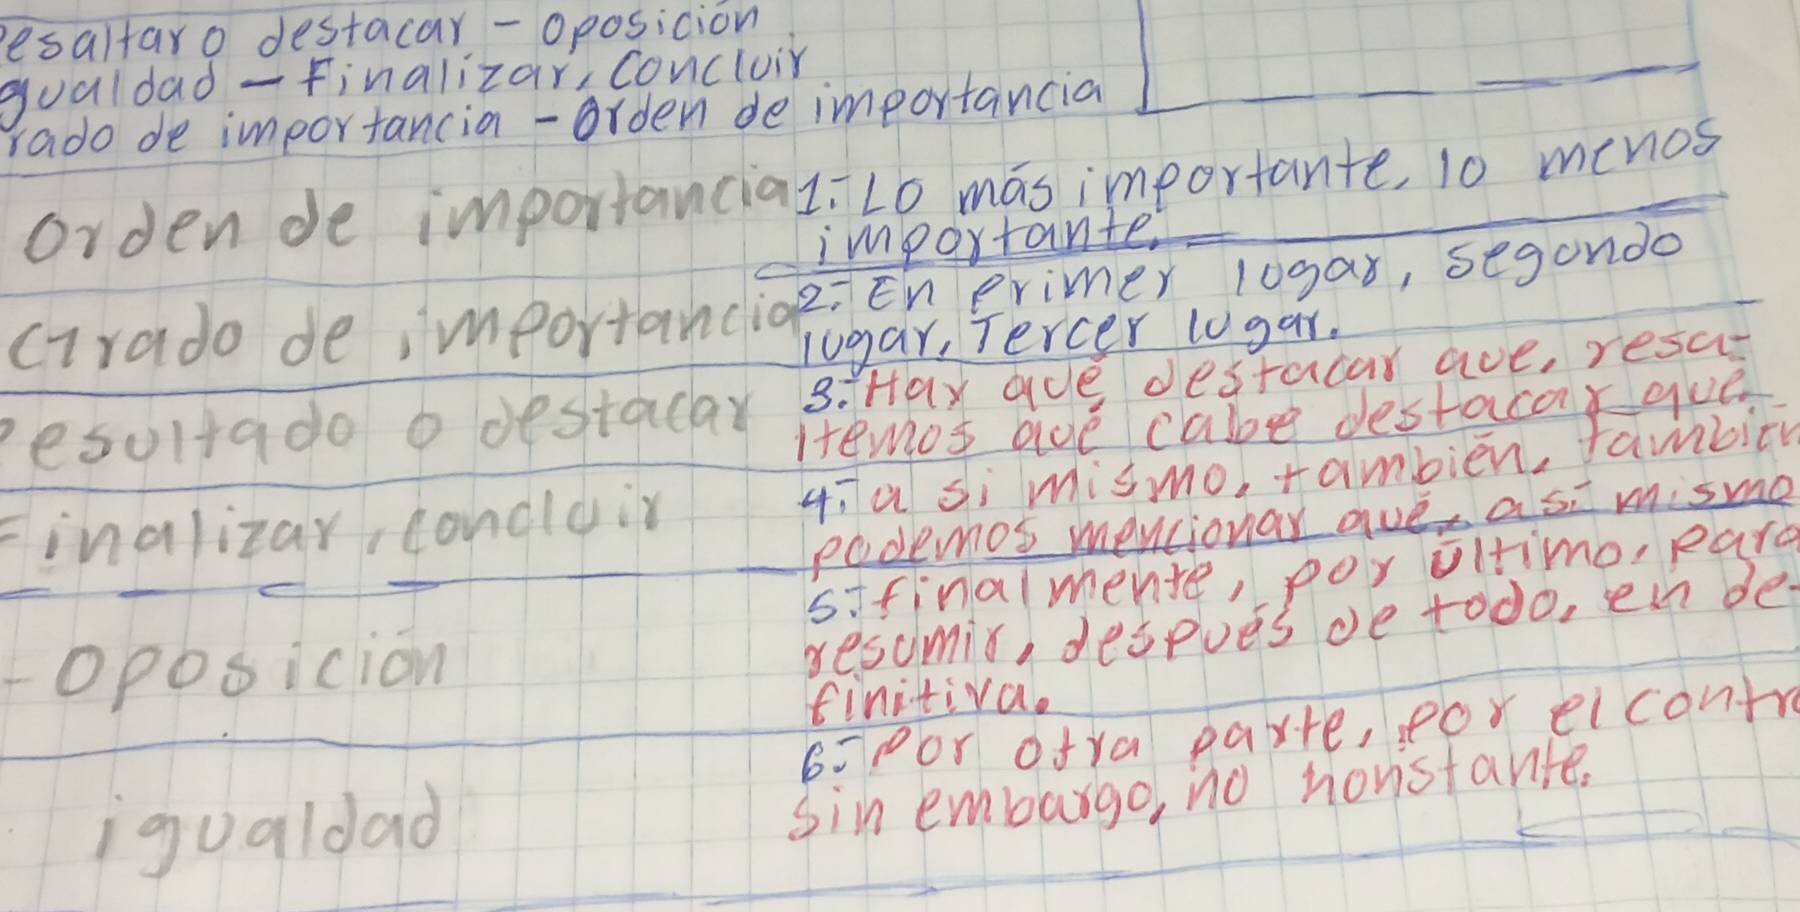 esaltar o destacar - oposición
gualdad - Finalizar, concluir
rado de importancia - orden de importancia
orden de importancia
1: Lo más importante, lo menos
importante.
Grado de importancia
2: En primer lugar, segundo
lugar, Tercer lugar.
resultado o destacar
3: Hay que destacar que, resa-
ltemos que cabe destacar que.
Finalizar, concluir
4: a si mismo, también, también
podemos mencionar que, así mismo
5: finalmente, por último, para
resumir, después de todo, en de-
finitiva.
- oposición
6: Por otra parte, por el contr
sin embargo, no nonstante.
igualdad